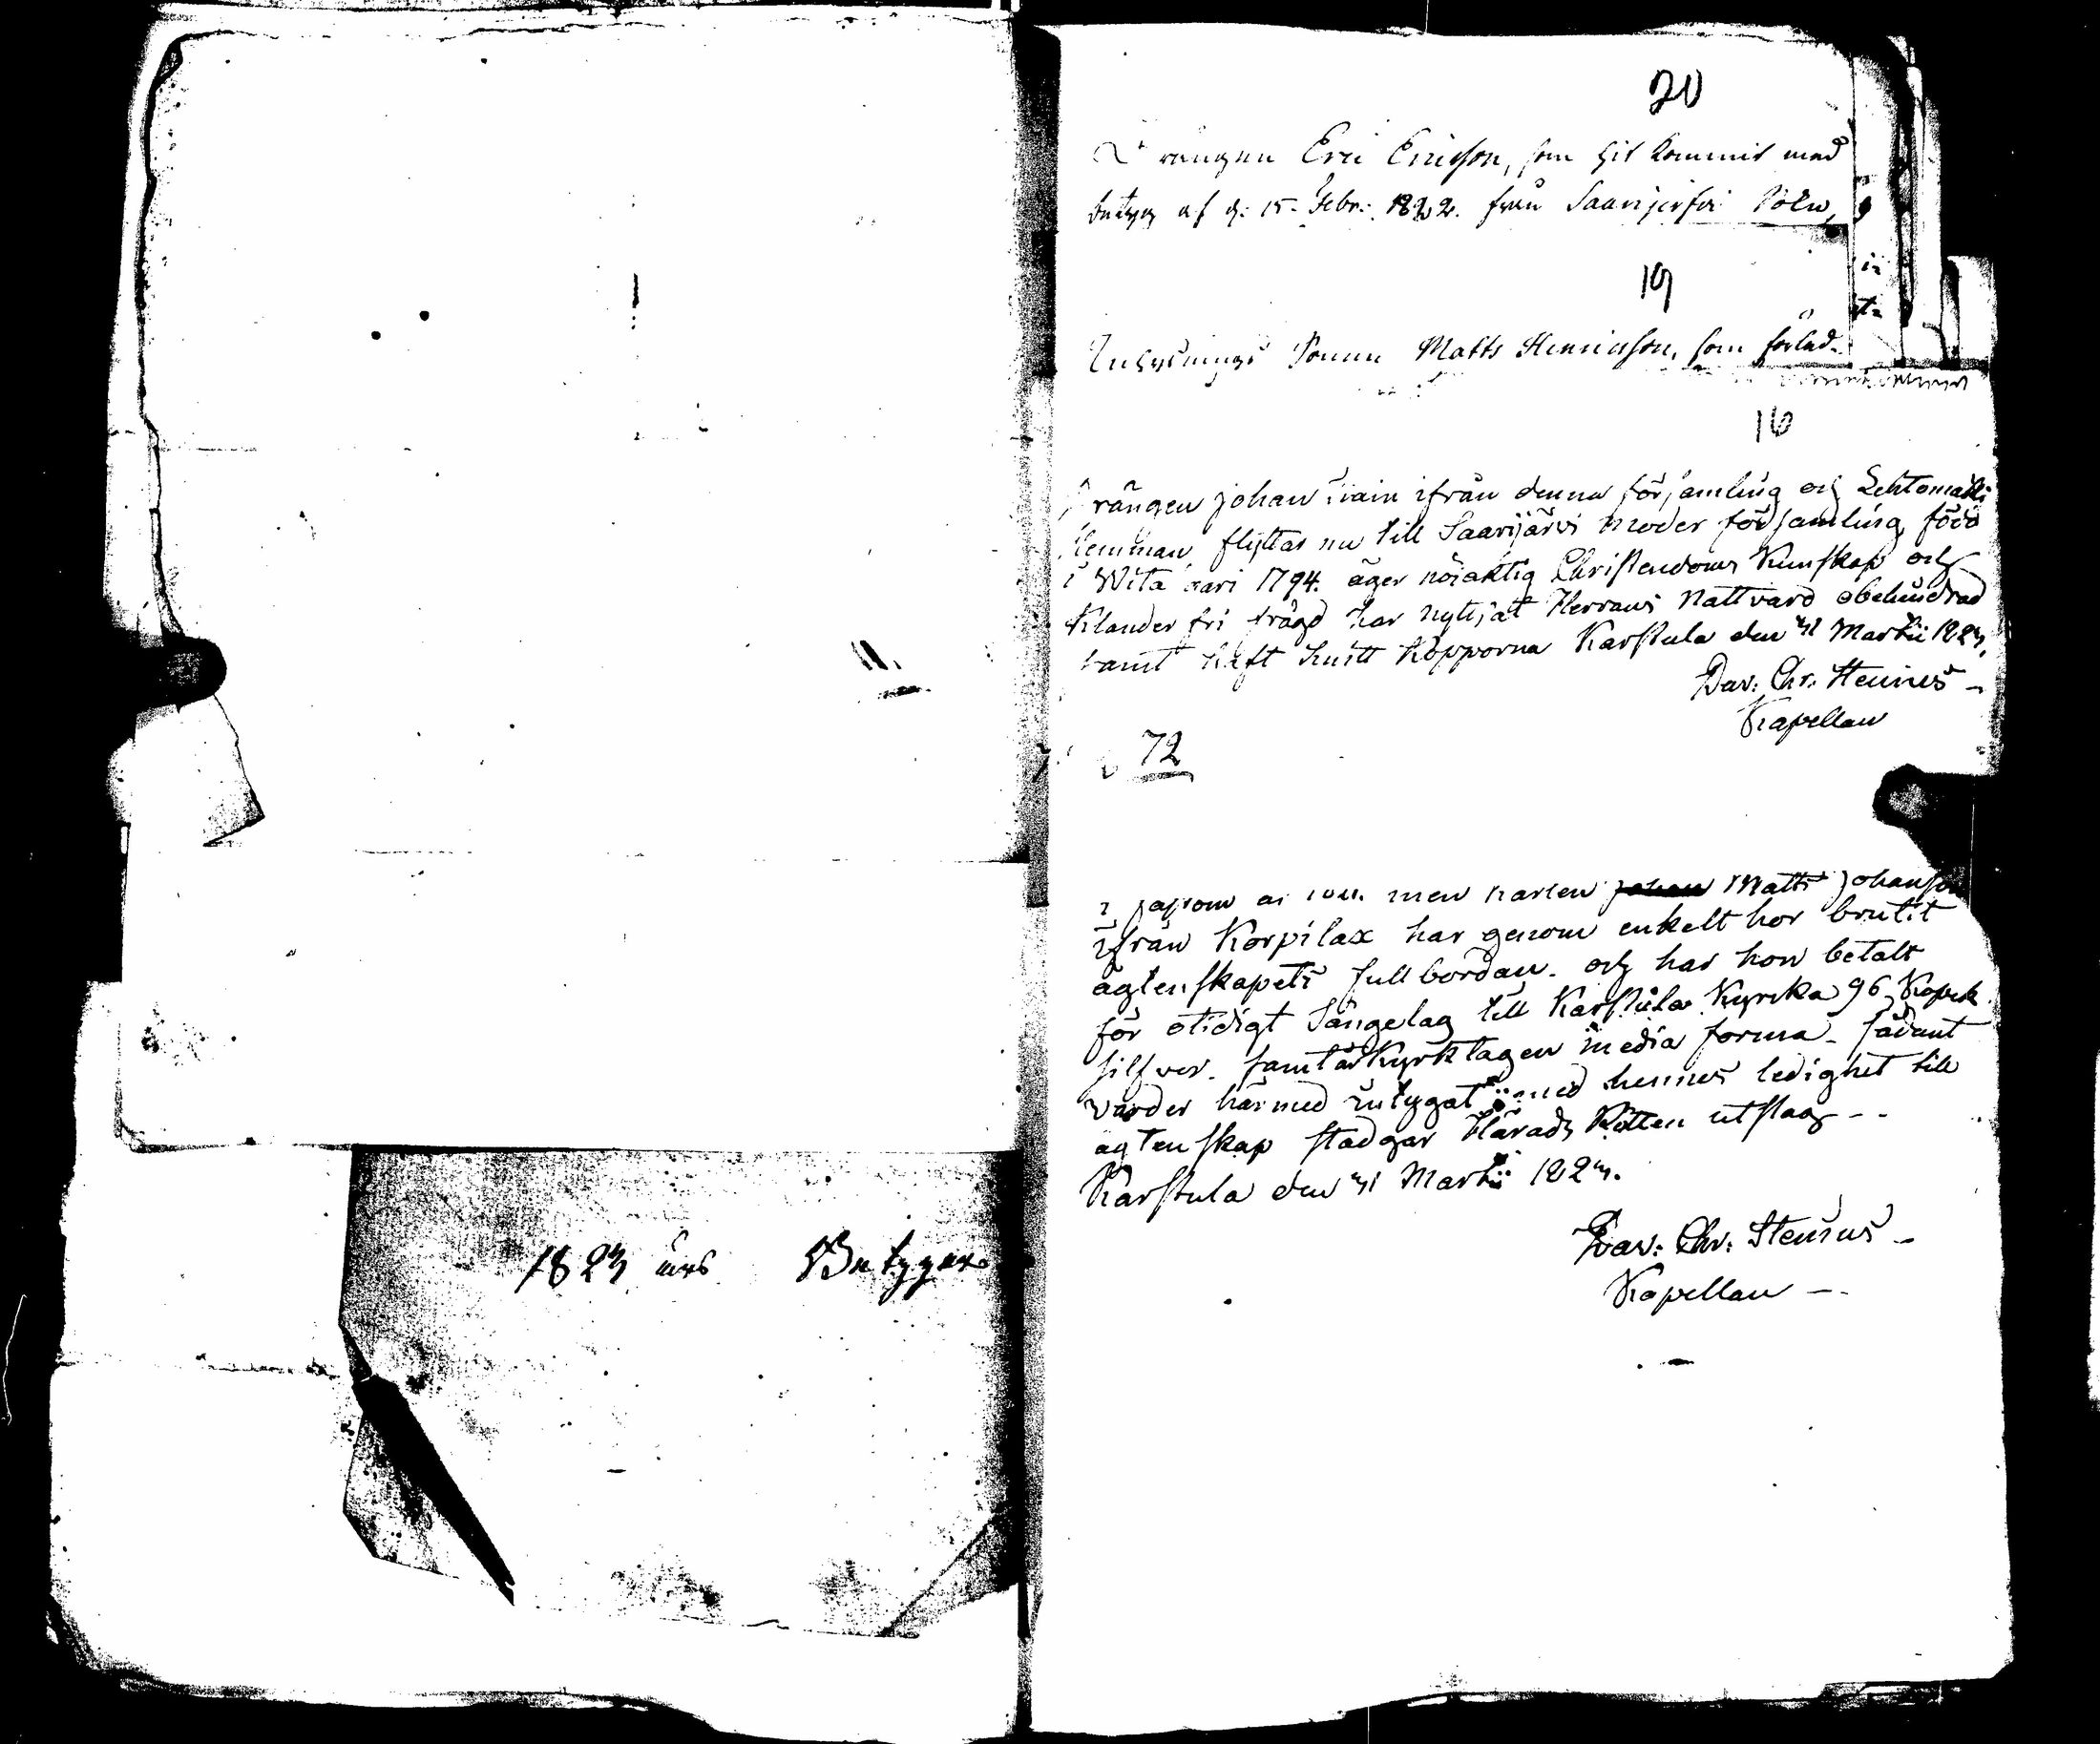 1823 års Betyger
20
Drängen Eric Ericsson, som hit kommit med
betyg af d: 15 Febr: 1822. från Saarijerfvi Sokn,
19
Inhysings Sonen Matts Henricsson, som förled-
16
Drängen johan ifrån denna församling och Lehtomäki
Hemman, flyttar nu till Saarijärvi moder församling, född
i Wita 1794. äger nöjaktig Christendoms Kunskap och
Klander fri frägd har nyttjat Herrans Nattvard obehindrad
samt haft hvitt Kopporna Karstula den 31 Martii 1823.
Dav: Chr: Stenius -
Kapellan
72
men karlen johan Matts johansson
ifrån Korpilax har genom enkelt hor brutit
ägtenskapets fullbordan. och har hon betalt
för otidigt Sängelag till Karstula Kyrcka 96 Kopek
silfver. samt är Kyrktagen media forma - sådant
varder härmed intygat: med hennes ledighet till
ägtenskap stadgar Härads Rätten utslag - -
Karstula den 31 Martii 1823.
Dav: Chr: Stenius -
Kapellan -